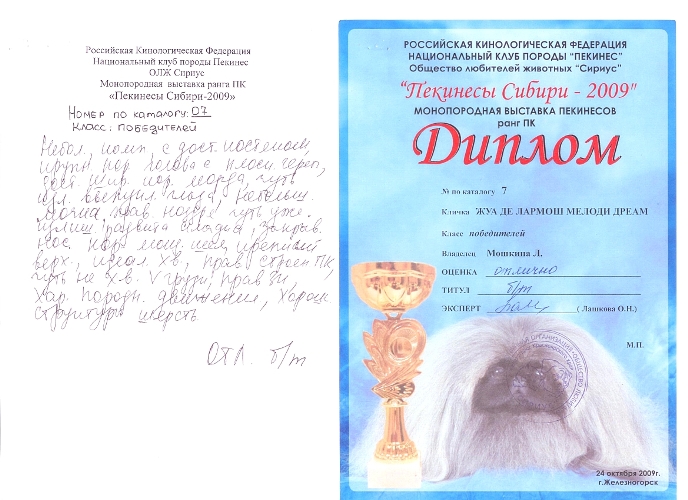 Российская Кинологическая Федерация
Национальный клуб породы Пекинес
ОЛЖ Сириус
Монопородная выставка ранга ПК
«Пекинесы Сибири-2009»
Номер по каталогу: 07
Класс: победителей
Небол, комп. с дост. костяком,
крупн кор голова с плоск череп,
дост шир кор морда, чуть
выпукл глаза,
прав чуть уже
развита складка, закрыв.
нос, кор мощ. шея, крепкий
верх, идеал хв, прав строен ПК,
чуть не хв. V груди, прав ЗК,
хар. породн. движении, хорош
структуры шерсть
ОТЛ. б/т
РОССИЙСКАЯ КИНОЛОГИЧЕСКАЯ ФЕДЕРАЦИЯ
НАЦИОНАЛЬНЫЙ КЛУБ ПОРОДЫ "ПЕКИНЕС"
Общество любителей животных "Сириус"
"Пекинесы Сибири - 2009"
МОНОПОРОДНАЯ ВЫСТАВКА ПЕКИНЕСОВ
ранг ПК
Диплом
№ по каталогу 7
Кличка ЖУА ДЕ ЛАРМОШ МЕЛОДИ ДРЕАМ
Класс победителей
Владелец Мошкина Л.
ОЦЕНКА отлично
ТИТУЛ б/т
ЭКСПЕРТ ( Лашкова О.Н.)
М.П.
24 октября 2009г.
г.Железногорск